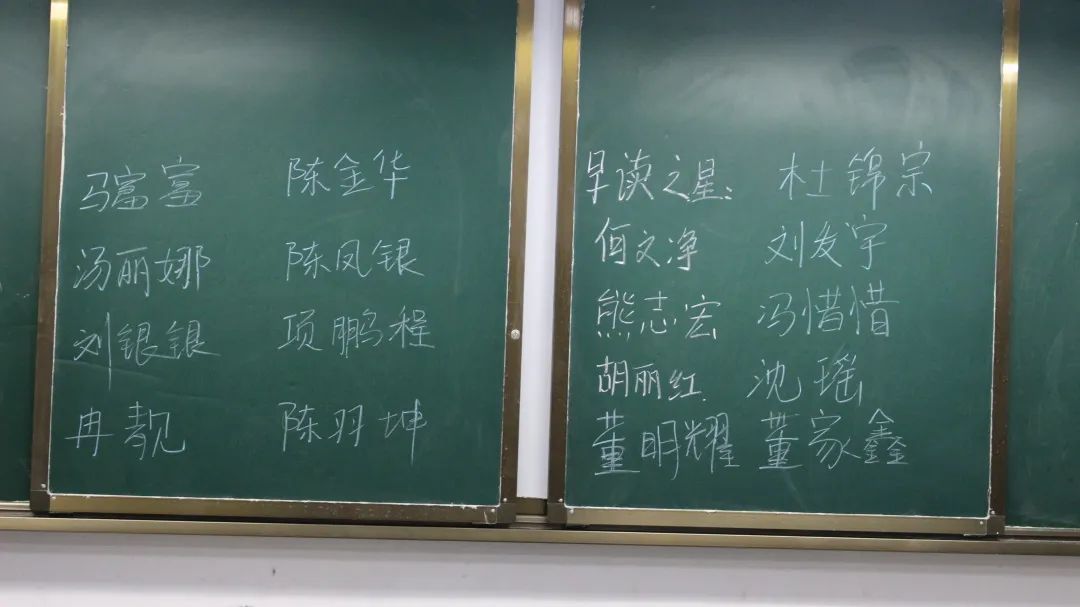 马富富 陈金华
汤丽娜 陈凤银
刘银银 项鹏程
冉靓 陈羽坤
早读之星: 杜锦宗
何文净 刘发宇
熊志宏 冯惜惜
胡丽红 沈瑶
董明耀 董家鑫